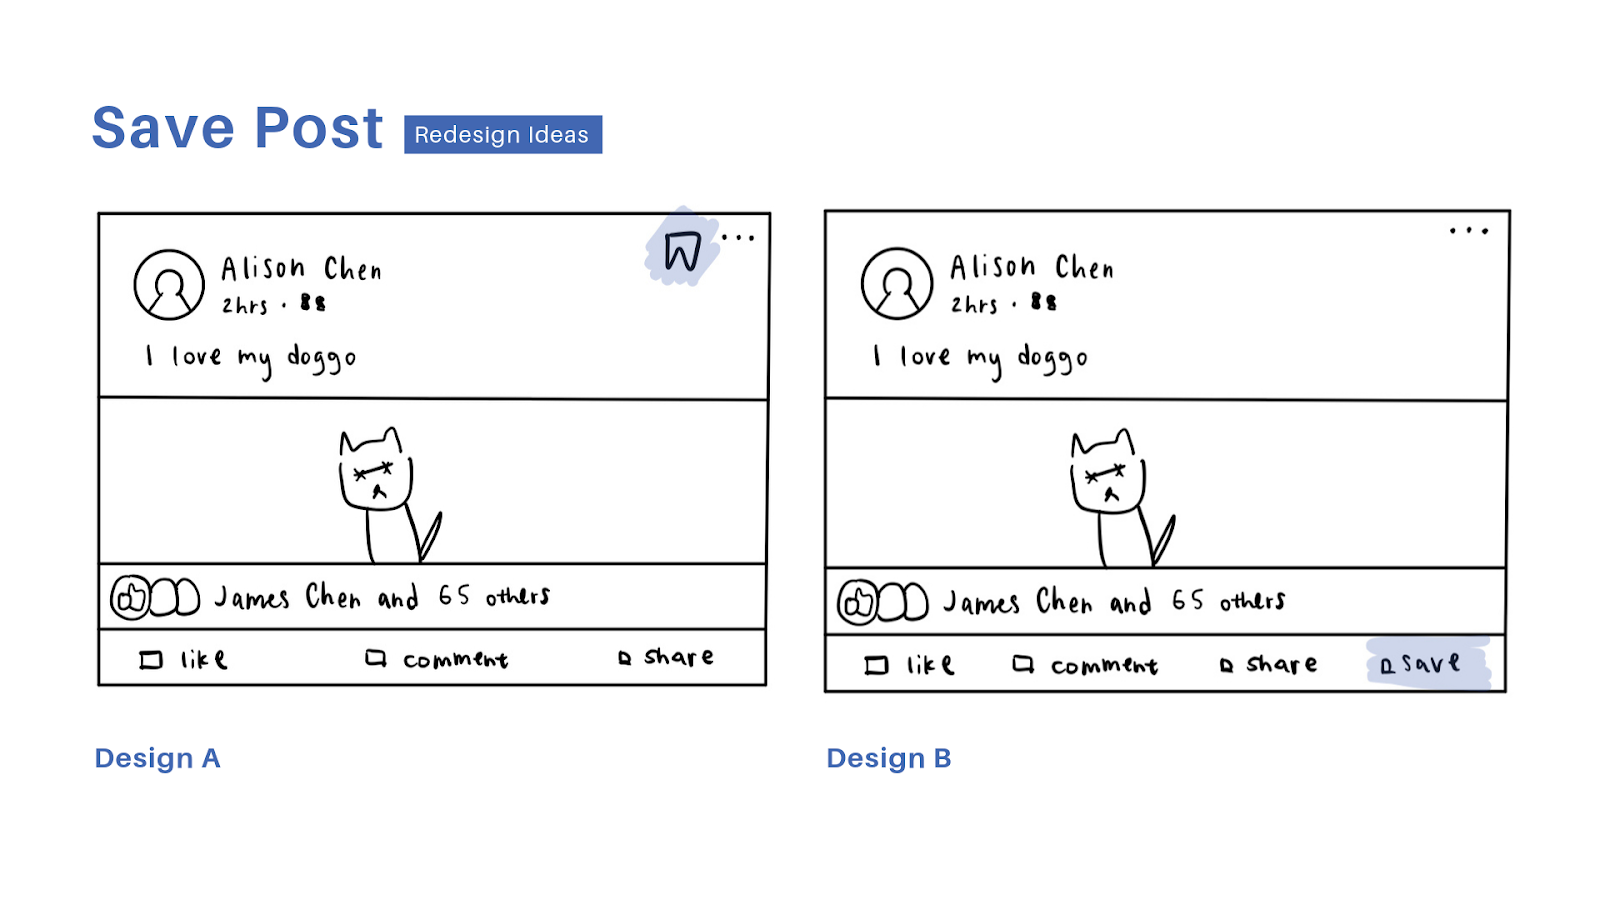 Save Post Redesign Ideas
...
Alison Chen
2hrs ·
I love my doggo
James Chen and 65 others
like comment share
Design A
...
Alison Chen
2hrs ·
I love my doggo
James Chen and 65 others
like comment share save
Design B